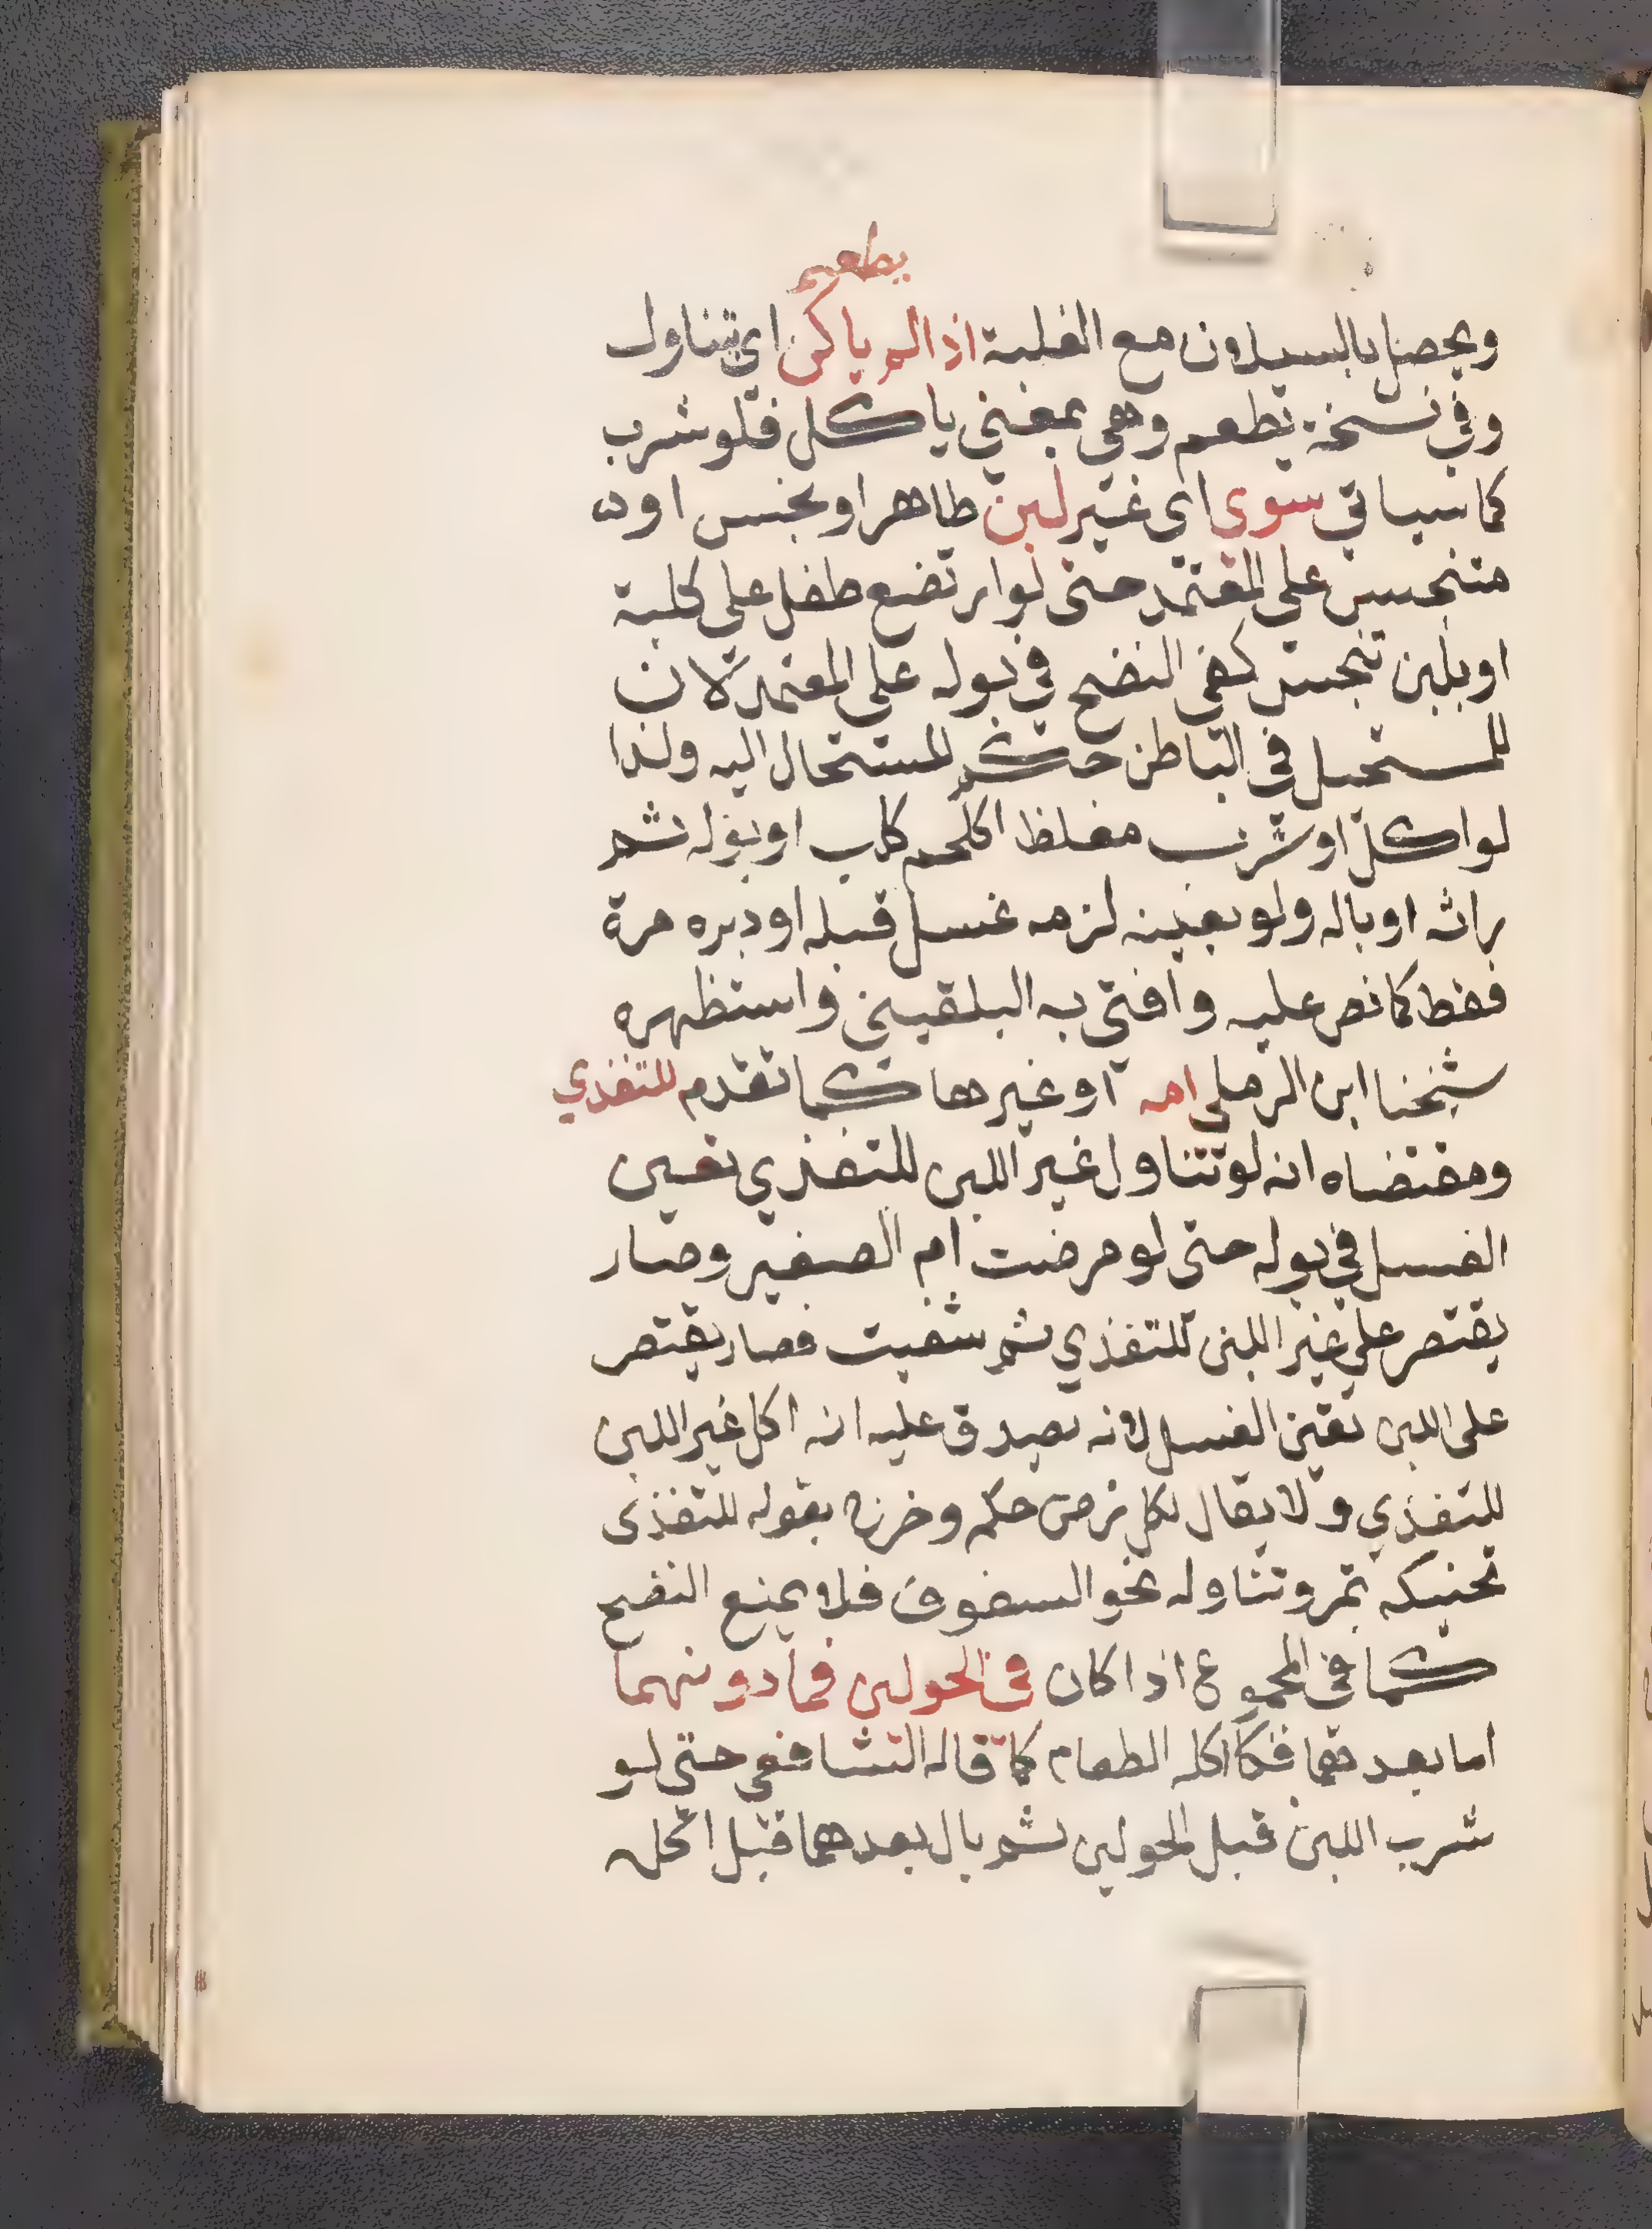 يطعم
ويحصل بالسيلان مع الغلبة اذا لم ياكل اي يتناول
وفي نسخة يطعم وهي بمعني ياكل فلو شرب
كما سياتي سوي اي غير لبن طاهر او نجس او
متنجس علي المعتمد حتى لو ارتضع طفل علي كلبة
او بلبن تنجس كفي النضح في بوله علي المعتمد لان
للمستحيل في الباطن حكم المستحال اليه ولذا
لو اكل او شرب مغلظا كلحم كلب او بوله ثم
راثه او باله ولو بعينه لزمه غسل قبله او دبره مرة
فقط كما نص عليه وافتى به البلقيني واستظهره
شيخنا ابن الرملي امه او غيرها كما تقدم للتغذي
ومقتضاه انه لو تناول غير اللبن للتغذي تعين
الغسل في بوله حتى لو مرضت ام الصغير وصار
يقتصر علي غير اللبن للتغذي ثم شفيت فصار يقتصر
على اللبن تعين الغسل لانه يصدق عليه انه اكل غير اللبن
للتغذي ولا يقال لكل زمن حكمه وخرج بقوله للتغذى
تحنيكه بتمر وتناوله نحو السفوف فلا يمنع النضح
كما في المجموع اذا كان في الحولين فما دونهما
اما بعدهما فكاكله الطعام كما قاله الشافعي حتى لو
شرب اللبن قبل الحولين ثم بال بعدهما قبل اكل